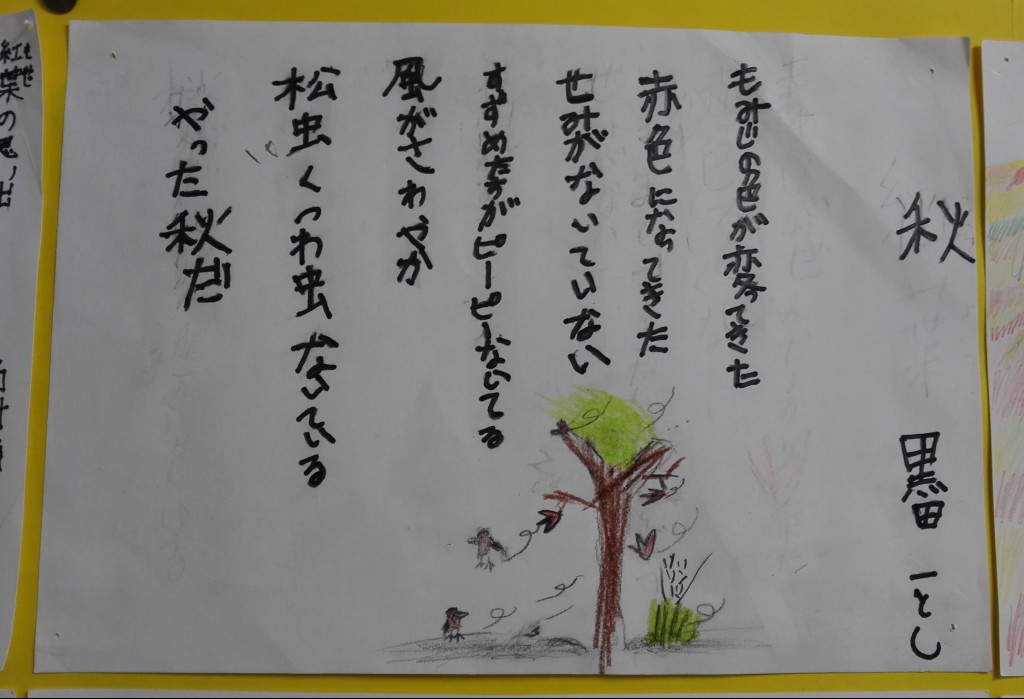 秋
黒田 一とし
もみじの色が変ってきた
赤色になってきた
せみがないていない
すずめたちがピーピーないてる
風がさわやか
松虫くつわ虫ないている
やった秋だ
リンリン
リンリン
紅葉の思い出